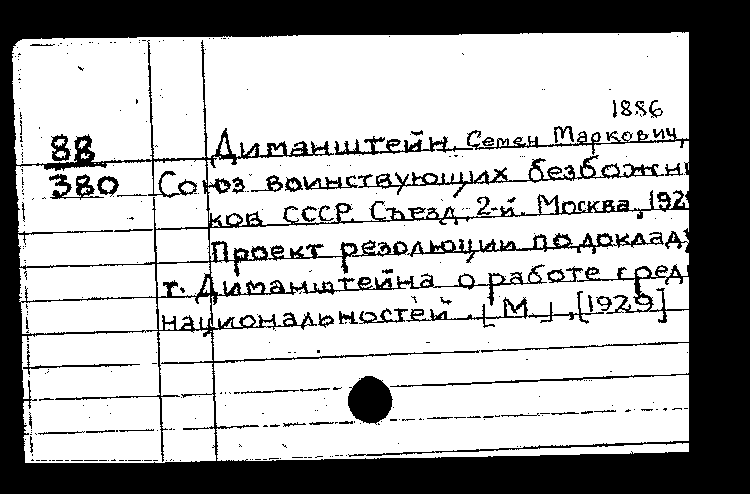 1886
88 Диманштейн, Семен Маркович,
380 Союз воинствующих безбожни
ков СССР. Съезд, 2-й. Москва, 1929
Проект резолюции по докладу
т. Диманштейна о работе сред
национальностей. [М.], [1929]